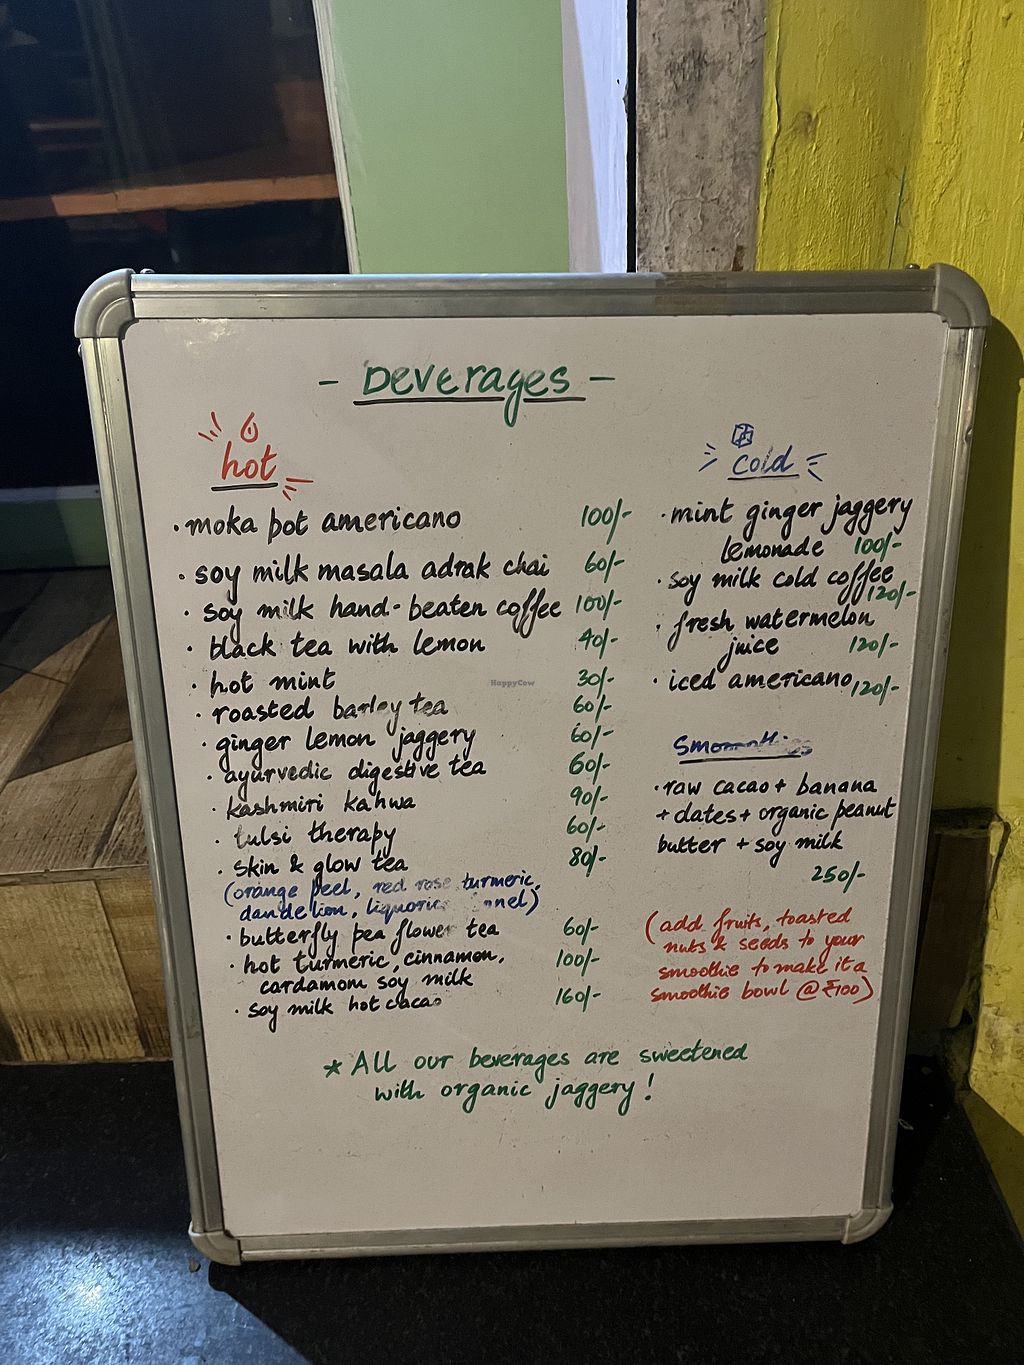 - Beverages -
hot
moka pot americano 100/-
soy milk masala adrak chai 60/-
soy milk hand-beaten coffee 100/-
black tea with lemon 40/-
hot mint 30/-
roasted barley tea 60/-
ginger lemon jaggery 60/-
ayurvedic digestive tea 60/-
kashmiri kahwa 90/-
tulsi therapy 60/-
skin & glow tea 80/-
(orange peel, red rose turmeric,
dandelion, liquorice
butterfly pea flower tea 60/-
hot turmeric, cinnamon, 100/-
cardamom soy milk
soy milk hot cacao 160/-
cold
mint ginger jaggery
lemonade 100/-
soy milk cold coffee
120/-
fresh watermelon
juice 120/-
iced americano 120/-
Smooothies
raw cacao + banana
+ dates + organic peanut
butter + soy milk
250/-
(add fruits, toasted
nuts & seeds to your
smoothie to make it a
smoothie bowl @ ₹100)
* All our beverages are sweetened
with organic jaggery!
HappyCow